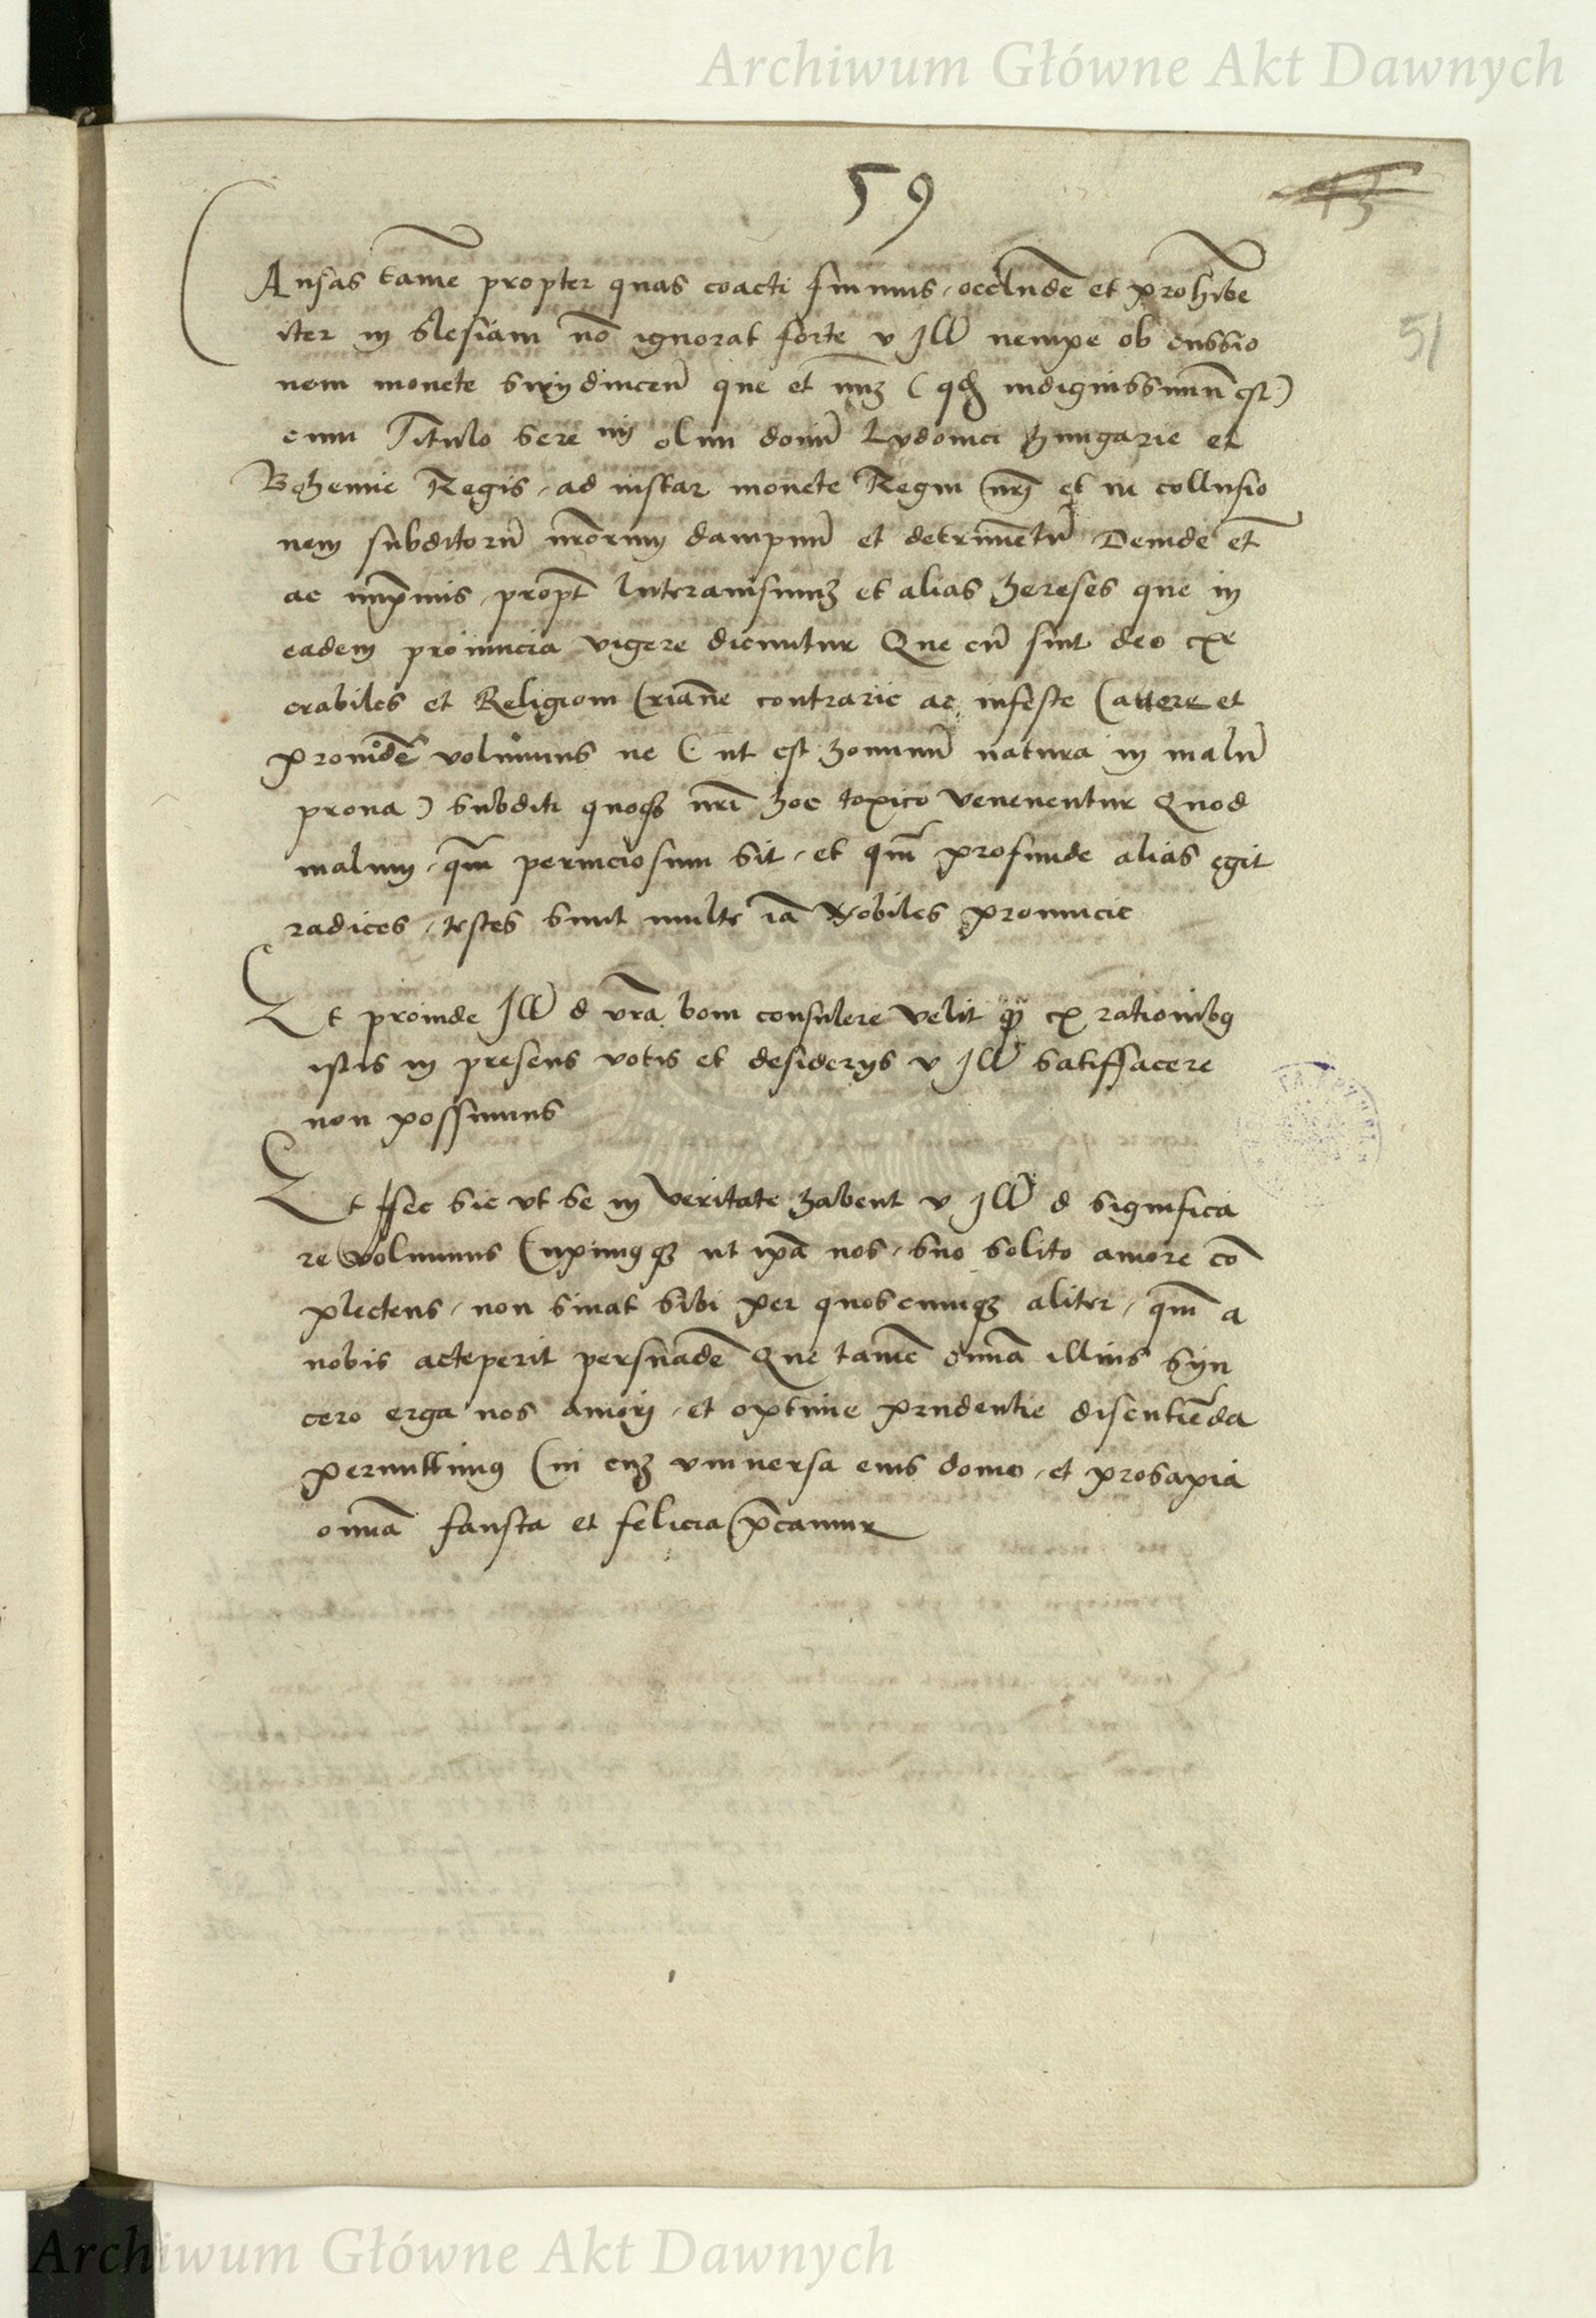 Archiwum Główne Akt Dawnych
59
13
51
Causas tamē propter quas coacti fuimus, occludē et prohibē
iter in Slesiam nō ignorat forte v Ill nempe ob cussio
nem monete Swydnicen̄ que et nūc (qd indignissimū est)
cum Titulo Sere mi olim domī Lvdovici Hungarie et
Bohemie Regis, ad instar monete Regni nrj et in collusio
nem subditorū nrōrum dampnū et detrimētū Deinde et̄
ac imp̄mis, propt̄ luteranismum et alias hereses que in
eadem provincia vigere dicuntur Que cū sint deo exe
crabiles et Religioni Criāne contrarie ac infeste Cavere et
providē voluimus ne (ut est hominū natura in malū
prona) Subditi quoqz nrī hoc toxico venenentur Quod
malum, qm̄ perniciosum sit, et qm̄ profunde alias egit
radices, testes sunt multe iā Nobiles provincie
Et proinde Ill d vrā boni consulere velit qd ex rationibq
istis in presens votis et desiderijs v Ill satisfacere
non possumus
Et hec sic vt se in veritate habent v Ill d significa
re voluimus Cupimusqz ut ipā nos, suo solito amore cō
plectens, non sinat sibi per quoscumqz aliter, qm̄ a
nobis acceperit persuadē Que tamē omīa illius Syn
cero erga nos amorj, et optime prudentie discutiēda
permittimus Cui cum vniversa eius domo, et prosapia
omīa fausta et felicia p̄camur
Archiwum Główne Akt Dawnych